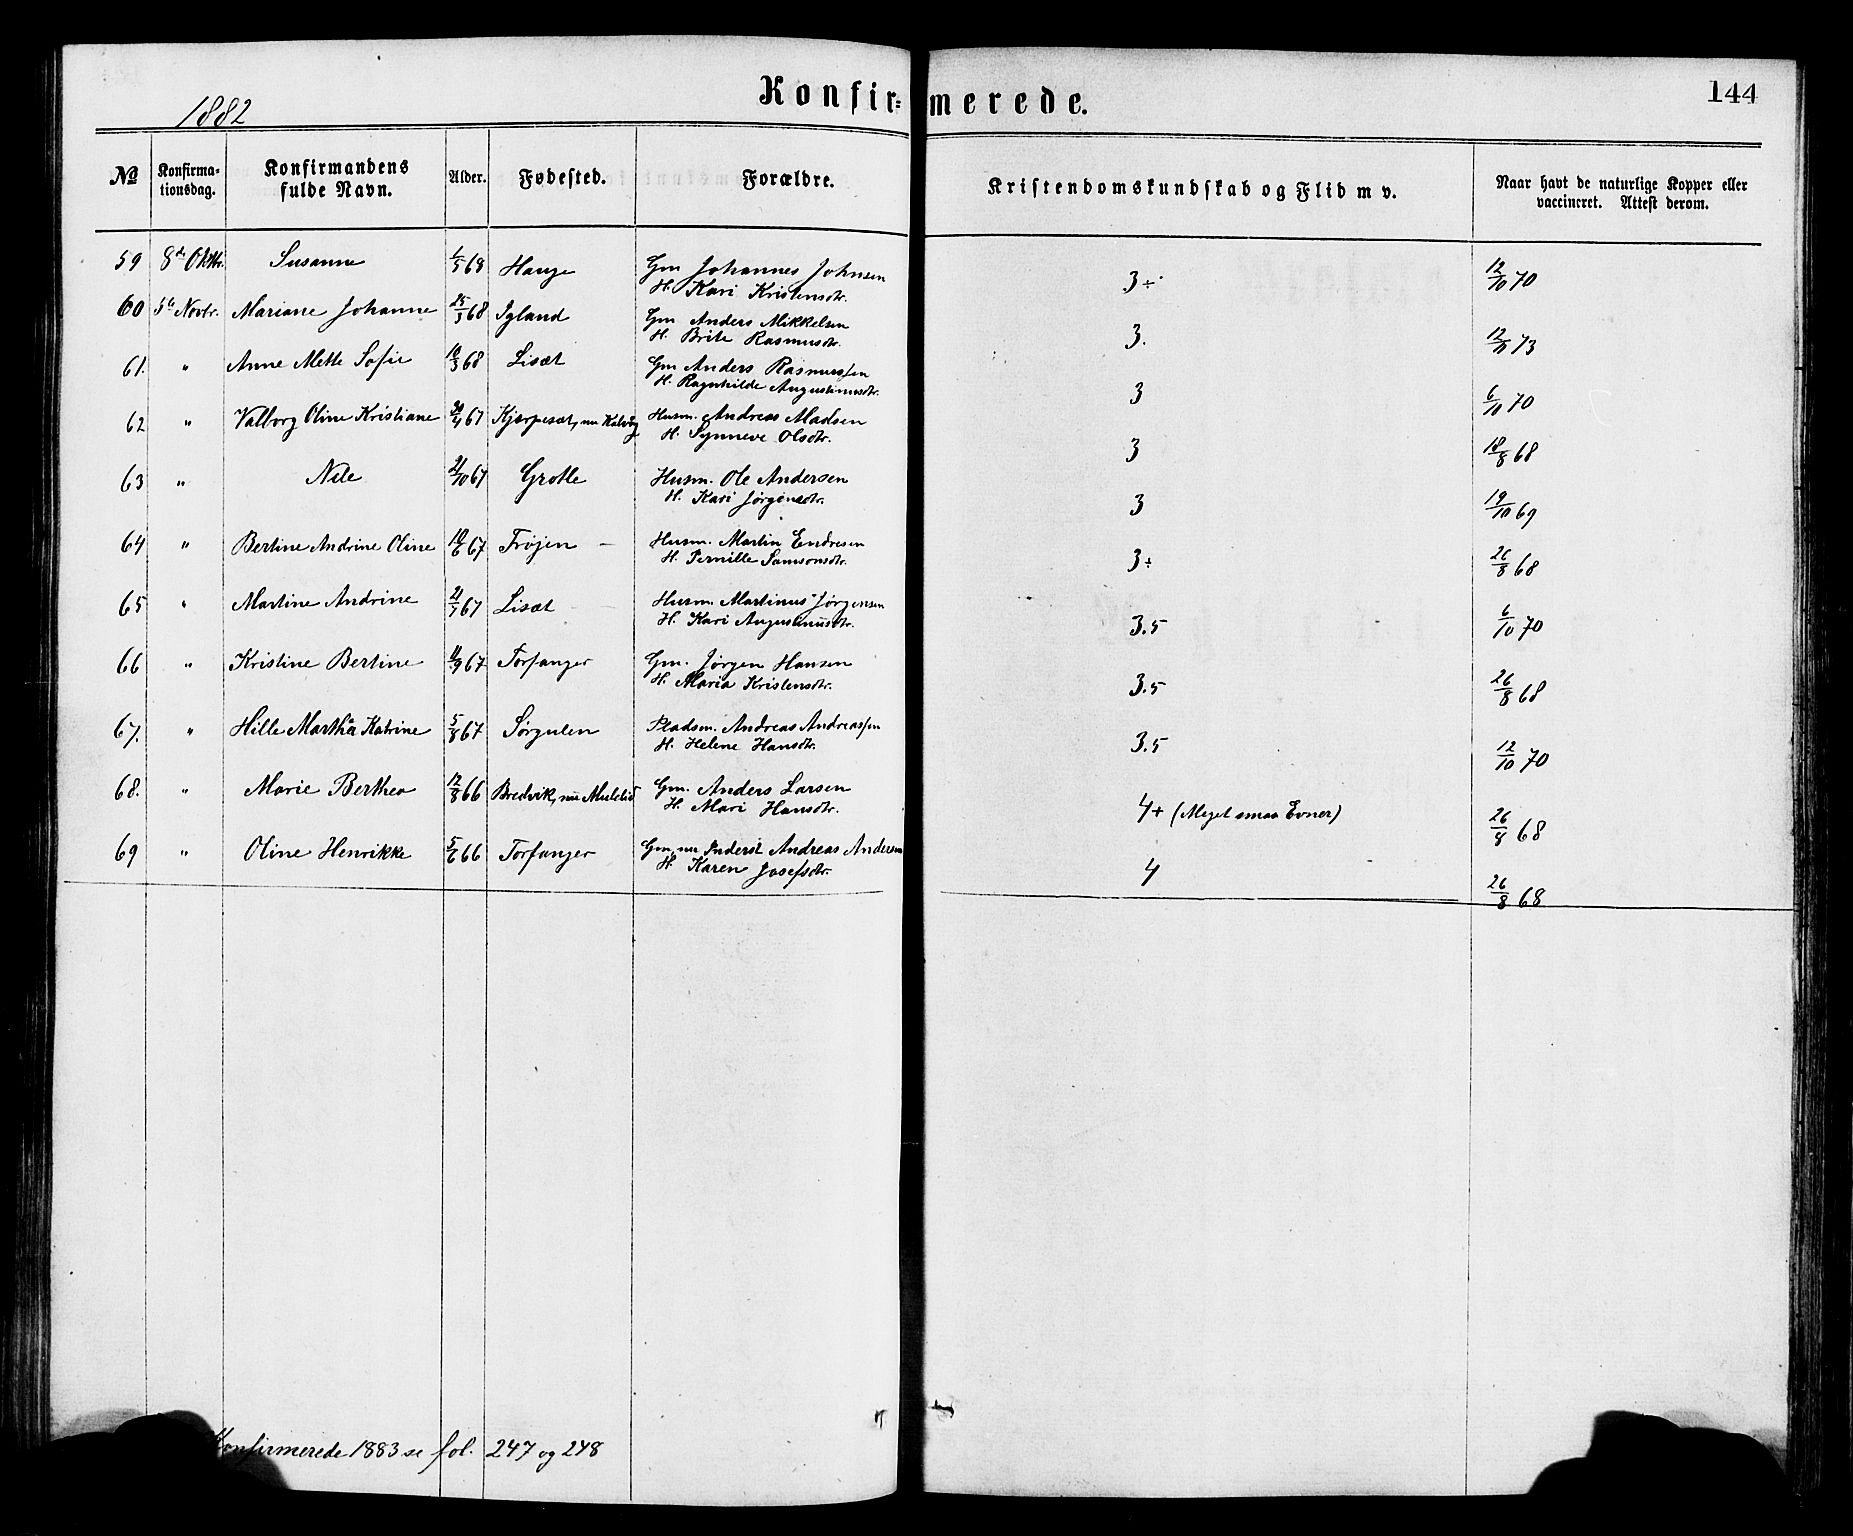 1882
Konfirmerede.
144
No
Konfirma-
tionsdag.
Konfirmandens
fulde Navn.
Alder.
Fødested.
Forældre.
Kristendomskundskab og Flid m v.
Naar havt de naturlige Kopper eller
vaccineret. Attest derom.
59 8de Oktbr. Susanne 1/5 68 Hauge Gm Johannes Johnsen
H. Kari Kristensdtr. 3÷ 12/10 70
60 5te Novbr. Mariane Johanne 25/3 68 Igland Gm Anders Mikkelsen
H. Brite Rasmusdtr. 3. 12/11 73
61. " Anne Mette Sofie 10/3 68 Lisæt Gm Anders Rasmussen
H. Ragnhilde Augustinusdtr. 3 6/10 70
62 " Valborg Oline Kristiane 30/4 67 Kjærpesæt, nu Kalvåg Husm. Andreas Madsen
H. Synneve Olsdtr. 3 18/8 68
63 " Nile 21/10 67 Grotle Husm. Ole Andersen
H. Kari Jørgensdtr. 3 19/10 69
64 " Bertine Andrine Oline 10/6 67 Frøjen Husm. Martin Endresen
H. Pernille Samsonsdtr. 3÷ 26/8 68
65 " Martine Andrine 21/7 67 Lisæt Husm. Martinus Jørgensen
H. Kari Augustinusdtr. 3.5 6/10 70
66 " Kristine Bertine 11/9 67 Torfanger Gm. Jørgen Hansen
H. Maria Kristensdtr. 3.5 26/8 68
67. " Hille Martha Katrine 5/8 67 Sørgulen Pladsm. Andreas Andreassen
H. Helene Hansdtr. 3.5 12/10 70
68. " Marie Berthea 12/8 66 Bredvik, nu Mulelid Gm. Anders Larsen
H. Mari Hansdtr. 4+ (Meget smaa Evner) 26/8 68
69 " Oline Henrikke 5/6 66 Torfanger Gm, nu Inderst Andreas Andersen
H. Karen Josefsdtr. 4 26/8 68
Konfirmerede 1883 se fol. 247 og 248